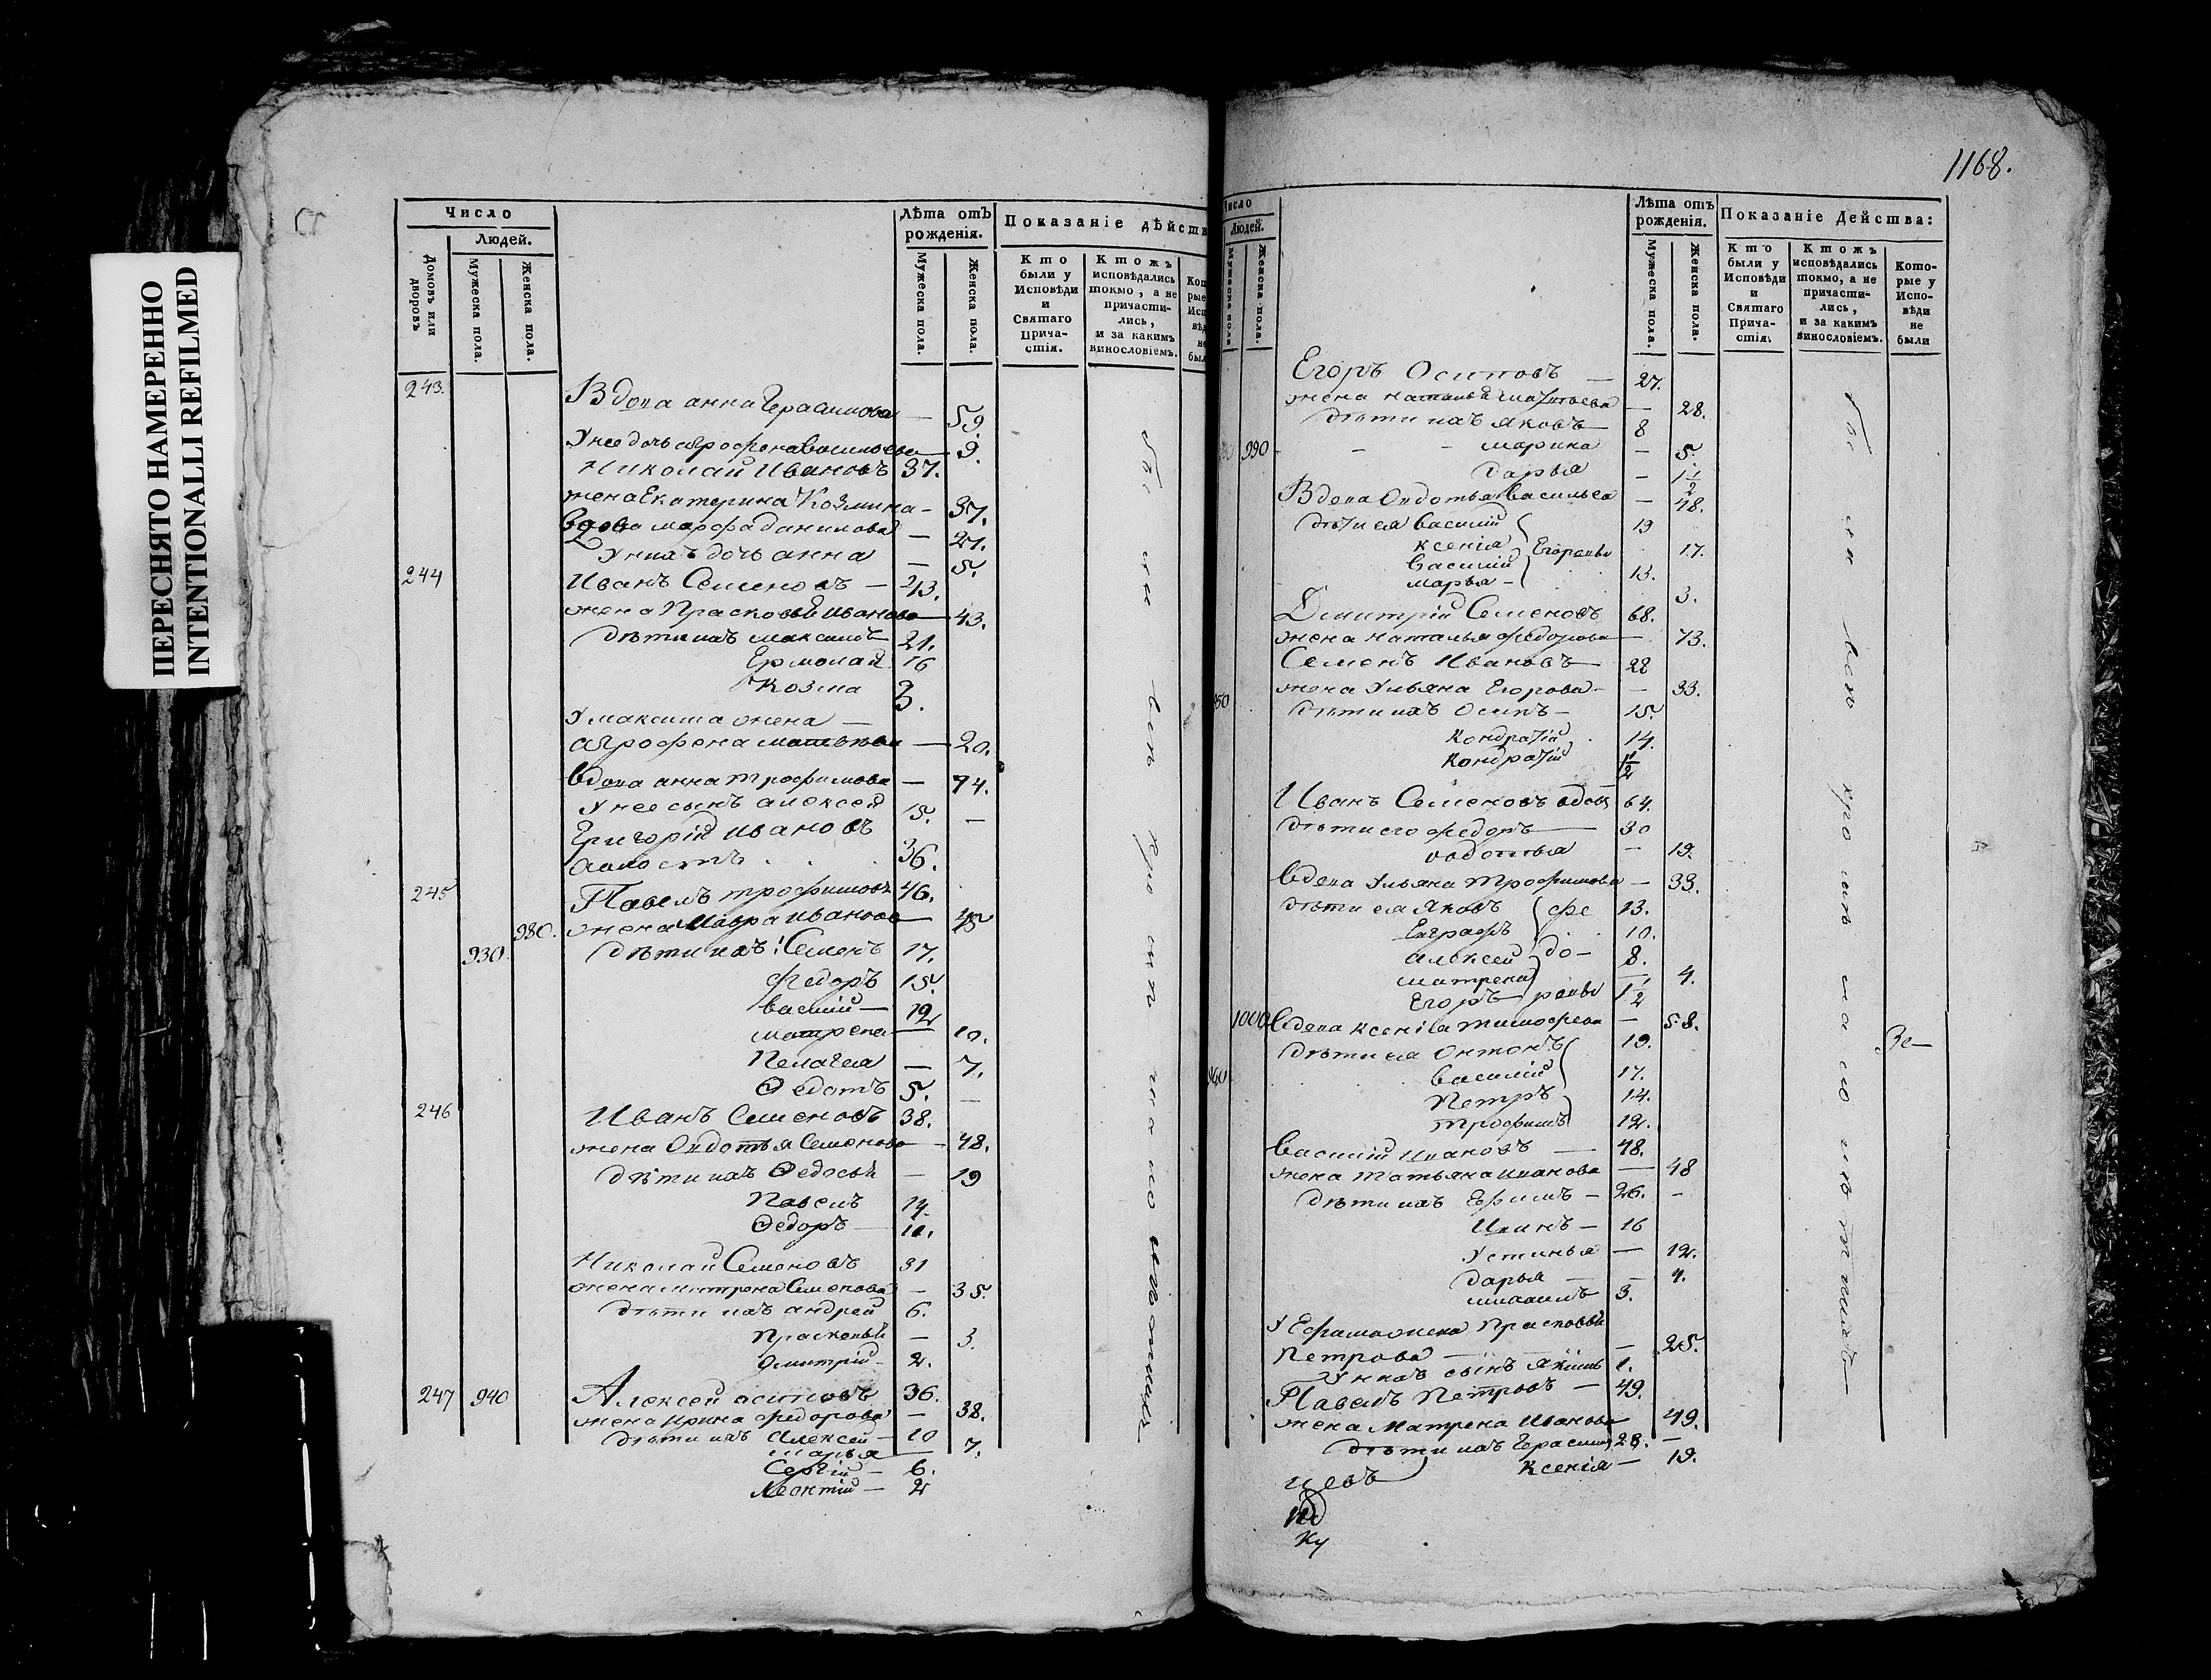 ПЕРЕСНЯТО НАМЕРЕННО
INTENTIONALLI REFILMED
Число
Людей.
Домовъ или дворовъ
Мужеска пола.
Женска пола.
Лѣта отъ рожденія.
Мужеска пола.
Женска пола.
Показаніе дѣйств
Кто были у Исповѣди и Святаго Причастія.
Ктожъ исповѣдались токмо, а не причастились, и за какимъ винословіемъ.
243. Вдова анна Герасимова — 59.
У нее дочь агрофена васильева — 9.
Николай Ивановъ 37.
жена Екатерина Козмина — 37.
вдова марфа данилова — 27.
У нихъ дочь анна — 5.
244 Иванъ Семеновъ — 43.
жена Прасковья Иванова — 43.
дѣти ихъ максимъ 21.
Ермолай 16
Козма 3.
У максима жена —
агрофена — 20.
вдова анна трофимова — 74.
У нее сынъ алексей 15. —
Григорій Ивановъ
36.
245 Павелъ трофимовъ 46.
980. жена Мавра Иванова — 45
930. дѣти ихъ: Семенъ 17.
федоръ 15.
василій — 12
матрена — 10.
Пелагея — 7.
Ѳедотъ 5. —
246 Иванъ Семеновъ 38.
жена Овдотья Семенова — 48.
дѣти ихъ Ѳедосья — 19
Павелъ 14.
Ѳедоръ — 11.
Николай Семеновъ 31
жена матрена Семенова — 35.
дѣти ихъ андрей 6.
Прасковья — 3.
дмитрій — 2.
247 940 Алексей осиповъ 36.
жена Ирина федорова — 38.
дѣти ихъ Алексей — 10
марья — 7.
Сергій — 6.
Леонтій — 2
1168.
Число
Людей.
Мужеска пола
Женска пола.
Лѣта отъ рожденія.
Мужеска пола.
Женска пола.
Показаніе Действа:
Кто были у Исповѣди и Святаго Причастія.
Ктожъ исповѣдались токмо, а не причастились, и за какимъ винословіемъ.
Которые у Исповѣди не были
Егоръ Осиповъ — 27.
жена наталья — 28.
дѣти ихъ яковъ — 8
990 — марина — 5.
дарья — 1 1/2
Вдова Овдотья Васильева — 48.
дѣти ея василій 19
ксенія Егоровы 17.
Василій 13.
марья — 3.
Дмитрій Семеновъ 68.
жена наталья федорова — 73.
Семенъ Ивановъ — 28
жена Ульяна Егорова — — 33.
дѣти ихъ Осипъ — 15.
Кондратій 14.
Кондратій 1/2
Иванъ Семеновъ вдовъ 64.
дѣти его федоръ — 30
овдотья — 19.
вдова Ульяна трофимова — 33.
дѣти ея Яковъ фе 13.
Евграфъ 10.
алексей до — 8.
матрена — 4.
Егоръ — ровы 1 1/2
1000 вдова ксенія тимофеева — 58.
дѣти ея Онтонъ 19.
Василій 17.
Петръ 14.
трофимъ 12.
Василій Ивановъ — 48.
жена татьяна иванова — 48
дѣти ихъ Ефимъ — 26. —
16
Устинья — 12.
дарья — 4.
3.
У Ефима жена Прасковья
Петрова — — 25.
У нихъ сынъ 1.
Павелъ Петровъ — 49.
жена Матрена Иванова — 49.
дѣти ихъ Герасимъ 28. —
ксенія — 19.